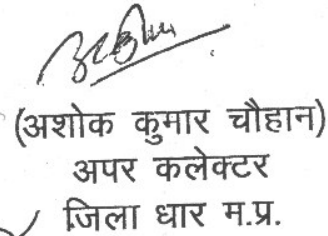 (अशोक कुमार चौहान)
अपर कलेक्टर
जिला धार म.प्र.